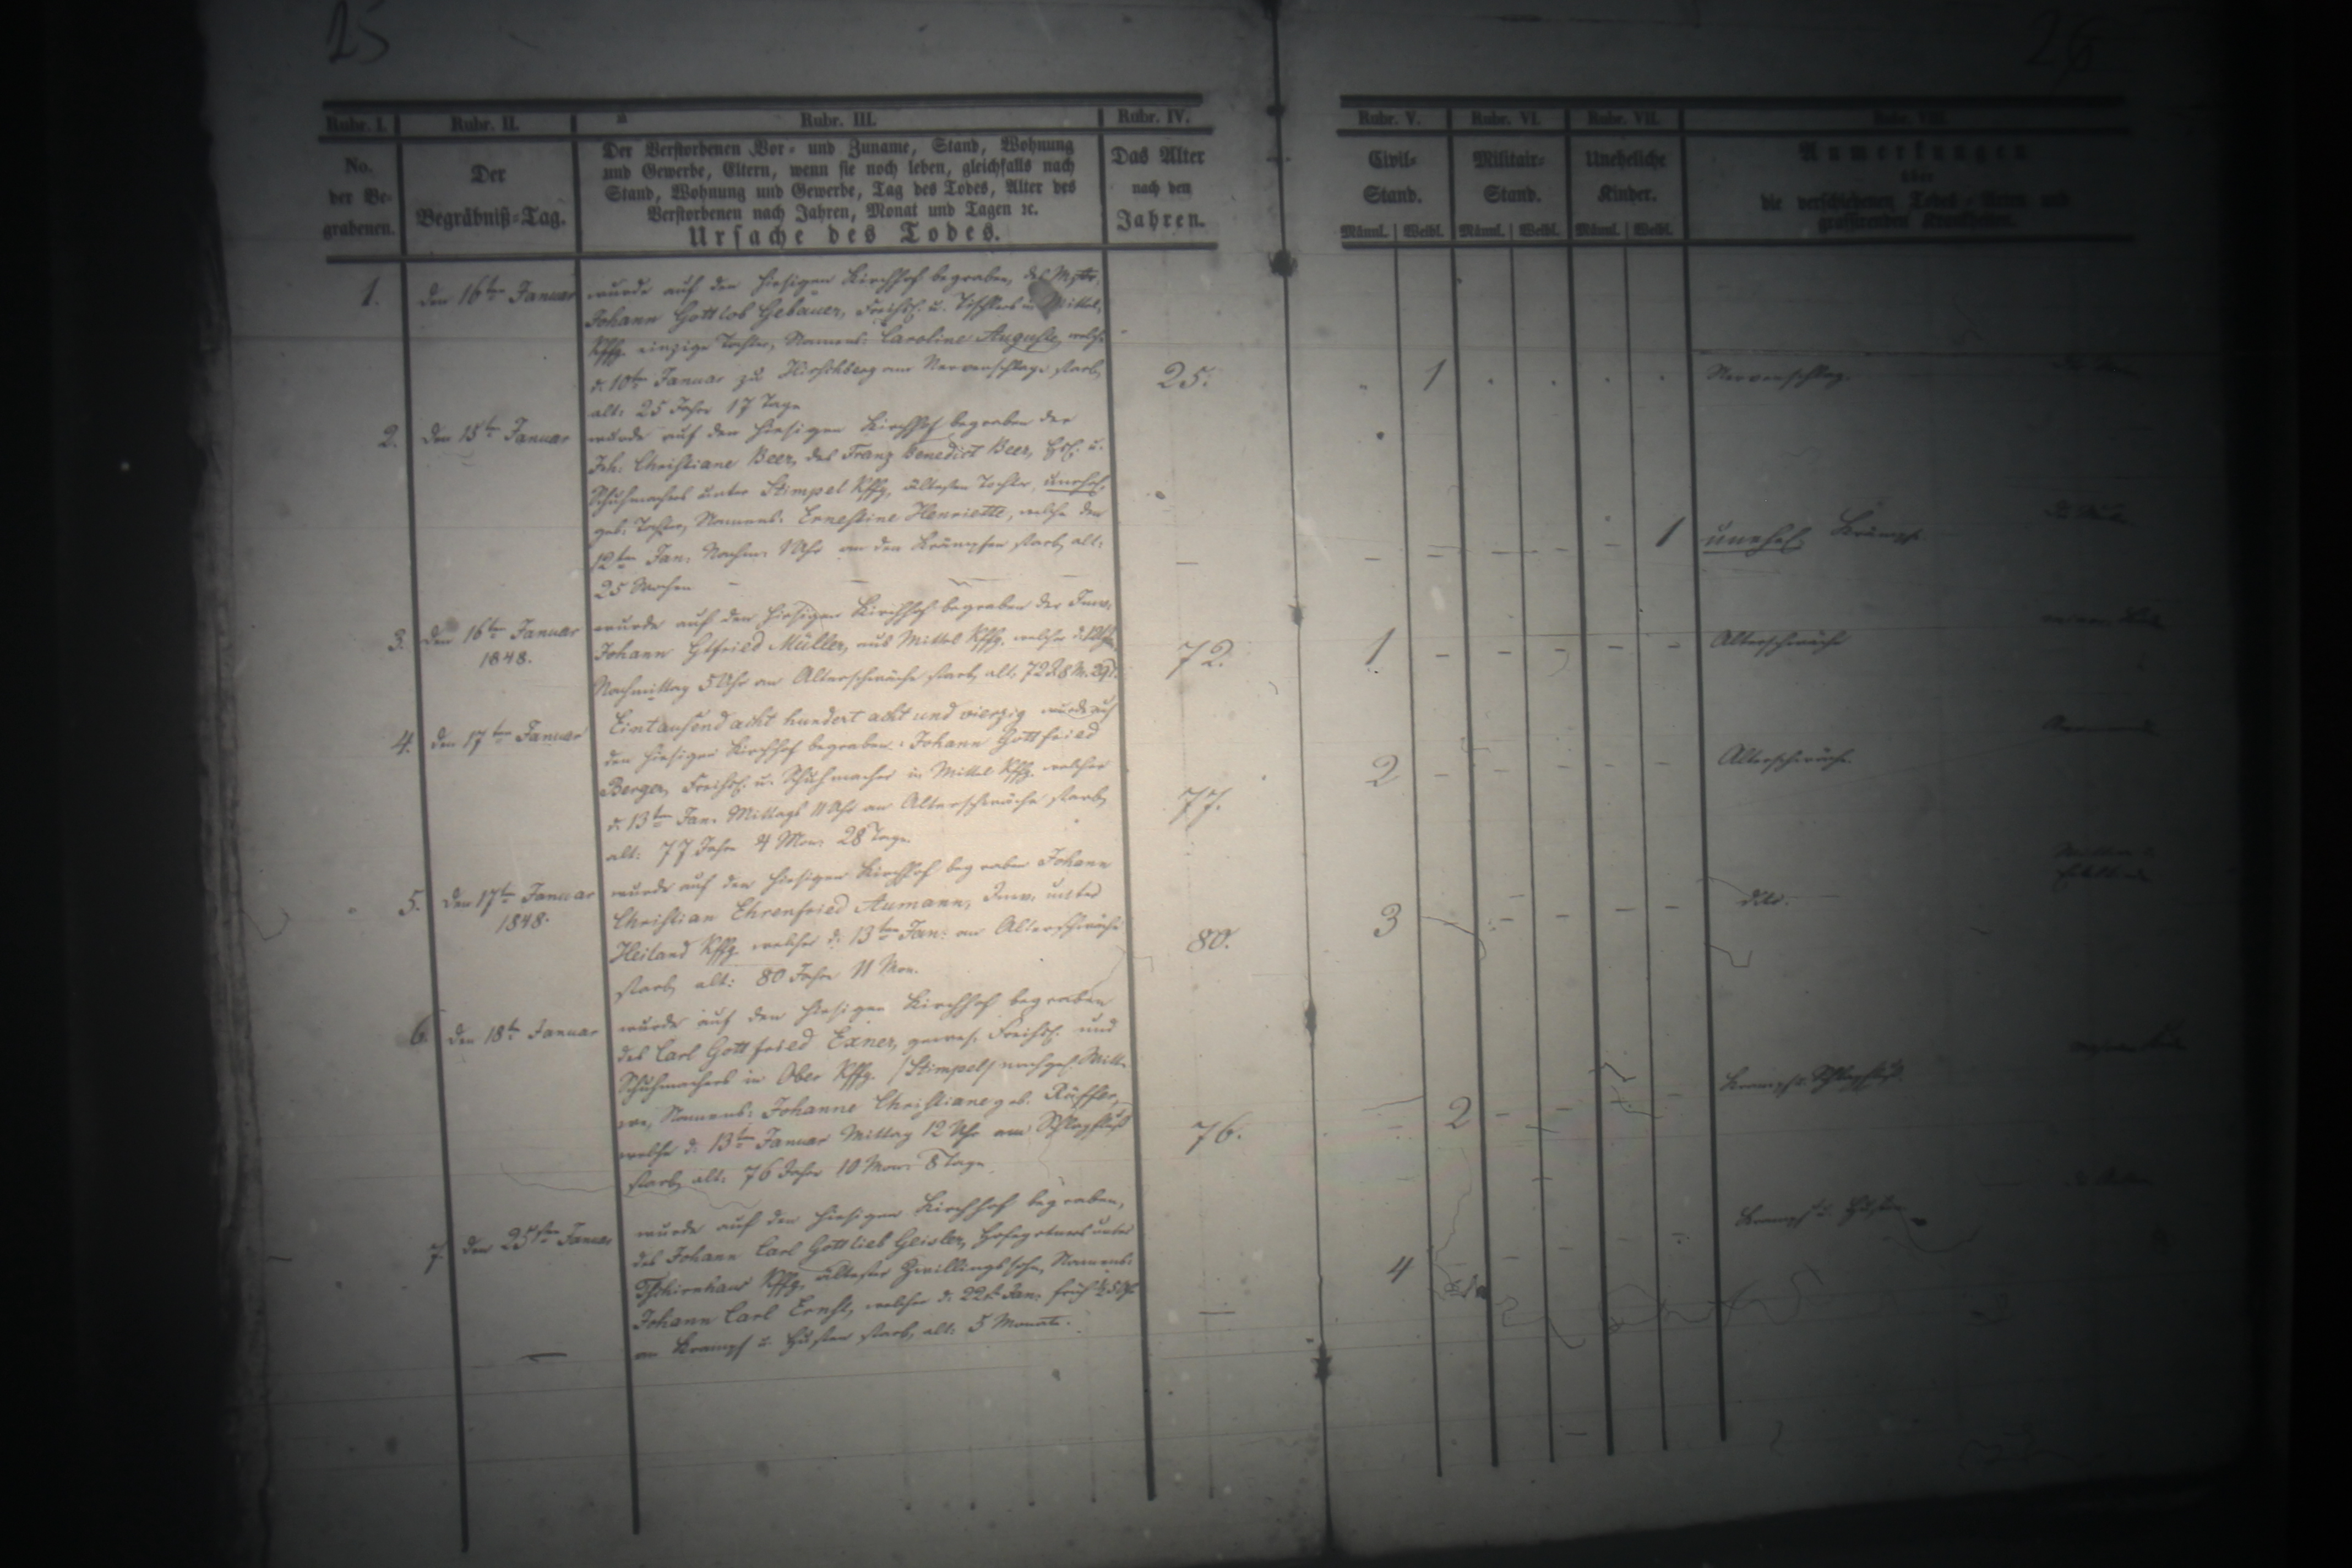 25
26
Rubr. I.
Rubr. II.
Rubr. III.
Rubr. IV.
Rubr. V.
Rubr. VI.
Rubr. VII.
Rubr. VIII.
No.
der Be-
grabenen.
Der
Begräbniß-Tag.
Der Verstorbenen Vor- und Zuname, Stand, Wohnung
und Gewerbe, Eltern, wenn sie noch leben, gleichfalls nach
Stand, Wohnung und Gewerbe, Tag des Todes, Alter des
Verstorbenen nach Jahren, Monat und Tagen ꝛc.
Ursache des Todes.
Das Alter
nach den
Jahren.
Civil-
Stand.
Militair-
Stand.
Uneheliche
Kinder.
Männl. | Weibl.
Männl. | Weibl.
Männl. | Weibl.
Anmerkungen
über
die verschiedenen Todes-Arten und
grassirenden Krankheiten.
1. den 16ten Januar
wurde auf den hiesigen Kirchhof begraben, des Mstr.
Johann Gottlob Gebauer, Freihsl. u. Tischlers in Mittel-
Kffg. einzige Tochter, Namens: Caroline Auguste, welche
d. 10ten Januar zu Hirschberg am Nervenschlage starb,
alt: 25 Jahre 17 Tage
25.
1
Nervenschlag.
2. den 15ten Januar
wurde auf den hiesigen Kirchhof begraben der
Joh: Christiane Beer, des Franz Benedict Beer, Hsl. u.
Schuhmachers unter Stimpel Kffg, ältesten Tochter, unehel.
geb. Tochter, Namens: Ernestine Henriette, welche den
12ten Jan: Nachm: 1 Uhr an den Krämpfen starb, alt:
25 Wochen
1
unehel. Krämpfe
3. den 16ten Januar
1848.
wurde auf den hiesigen Kirchhof begraben der Inw:
Johann Gtfried Müller, aus Mittel Kffg. welcher d.
Nachmittag 5 Uhr an Altersschwäche starb, alt: 72 J. 8 M. 29 T.
72.
1
Altersschwäche
4. den 17ten Januar
Eintausend acht hundert acht und vierzig wurde auf
den hiesigen Kirchhof begraben: Johann Gottfried
Berger, Freihsl. u. Schuhmacher in Mittel Kffg. welcher
d. 13ten Jan. Mittags 11 Uhr an Altersschwäche starb,
alt: 77 Jahre 4 Mon: 28 Tage.
77.
2
Altersschwäche.
5. den 17ten Januar
1848.
wurde auf den hiesigen Kirchhof begraben Johann
Christian Ehrenfried Aumann, Inw: unter
Heiland Kffg. welcher d: 13ten Jan: an Altersschwäche
starb, alt: 80 Jahre 11 Mon.
80.
3
dito.
6. den 18ten Januar
wurde auf den hiesigen Kirchhof begraben
des Carl Gottfried Exner, gewes. Freihsl. und
Schuhmachers in Ober Kffg. (Stimpel) nachgel. Witt-
we, Namens: Johanne Christiane geb. Räffler,
welche d: 13ten Januar Mittag 12 Uhr am Schlagfluß
starb, alt: 76 Jahre 10 Mon: 8 Tage.
76.
2
Schlagfluß
7. den 25sten Januar
wurde auf den hiesigen Kirchhof begraben,
des Johann Carl Gottlieb Geisler, Hofegärtners unter
Tschirnhaus Kffg, ältester Zwillingssohn, Namens:
Johann Carl Ernst, welcher d: 22t. Jan: früh ½5 Uhr
an Krampf u. Husten starb, alt: 5 Monate.
4
Krampf u. Husten